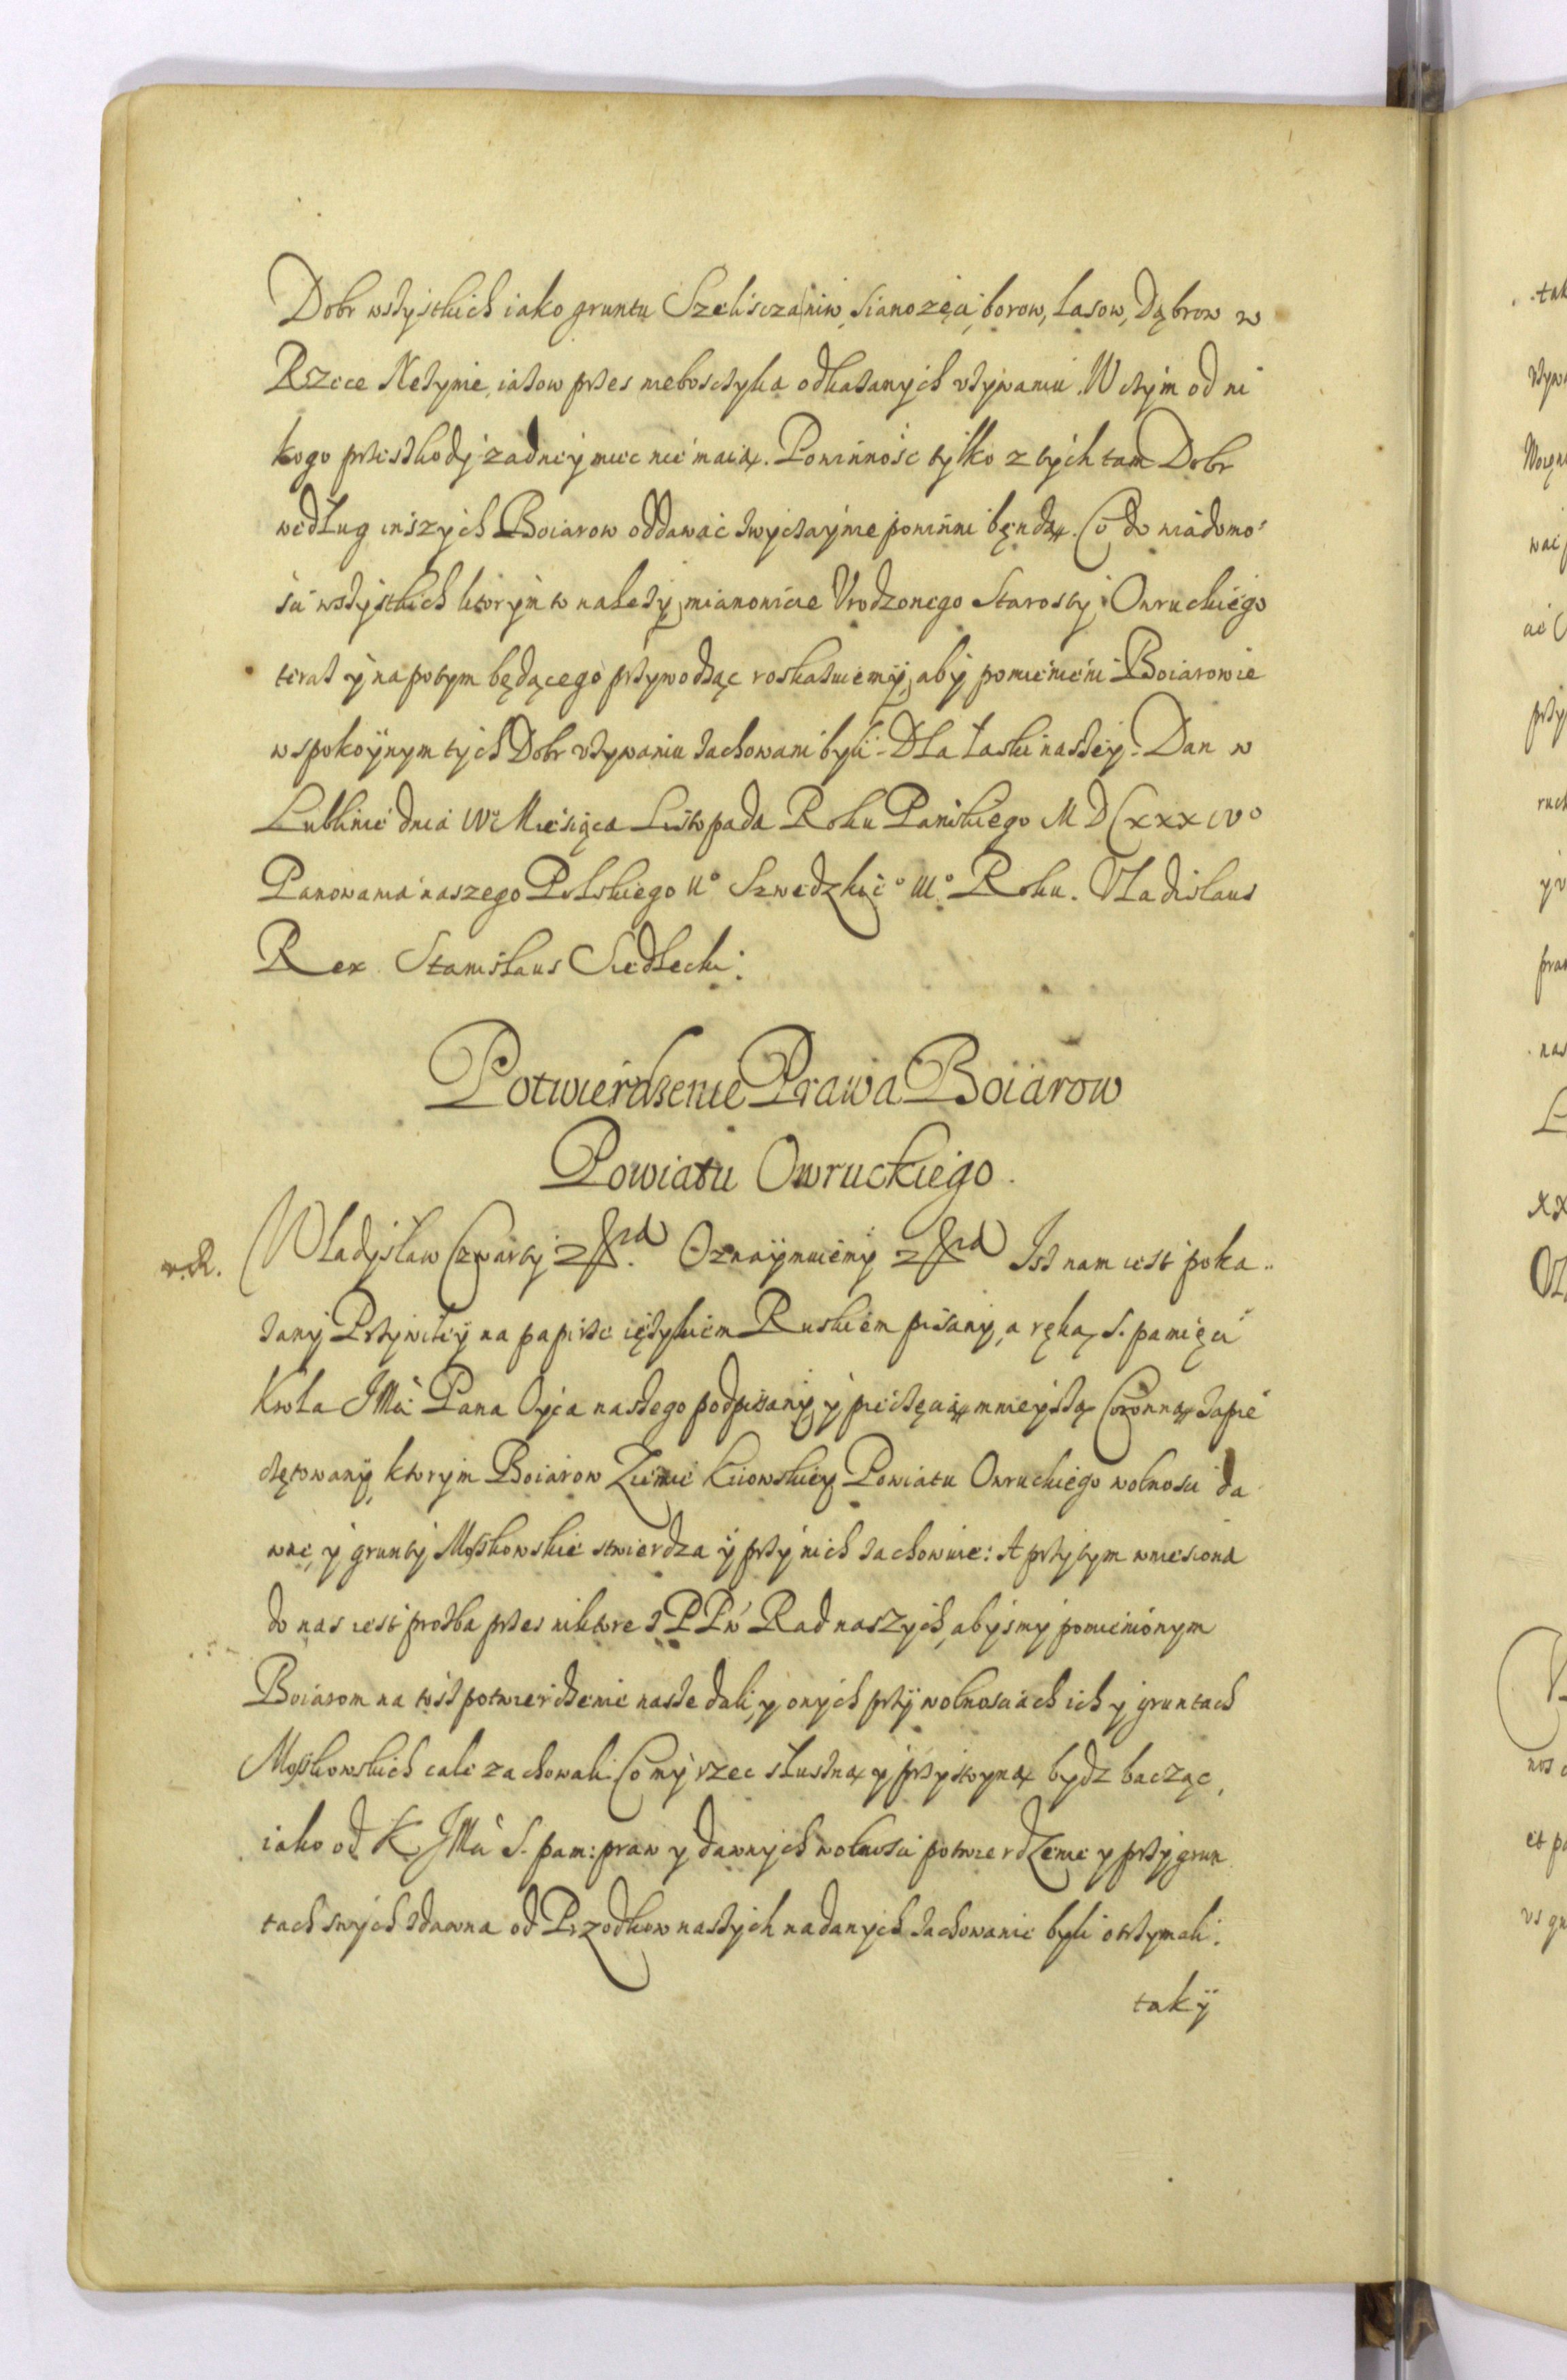 Dobr wszystkich iako gruntu Szeliscza niw, sianożęci, borow, lasow, Dąbrow w
Rzece Neżynie, iazow przes nieboszczyka odkazanych używaniu. W czym od ni
kogo przeszkody żadney miec nie maią. Powinnośc tylko z tych tam Dobr
według inszych Boiarow oddawać zwyczayne powinni będą. Co do wiadomo
sci wszystkich ktorym to należy, mianowicie Urodzonego Starosty Owruckiego
teraz y napotym będącego przywodząc roskazuiemy, aby pomienieni Boiarowie
w spokoynym tych Dobr używaniu zachowani byli. Dla łaski naszey. Dan w
Lublinie dnia IV Miesiąca Listopada Roku Pańskiego MDCXXXIVo
Panowania naszego Polskiego IIo Szwedzkieo IIIo Roku. Vladislaus
Rex Stanislaus Siedlecki.
Potwierdzenie Prawa Boiarow
Powiatu Owruckiego.
Władysław Czwarty z Bożd Oznaymuiemy Isz nam iest poka
zany Przywiley na papirze ięzykiem Ruskiem pisany, a ręką S. pamięci
Krola JMci Pana Oyca naszego podpisany y pieczęcią mnieyszą Coronną zapie
czętowany, ktorym Boiarow Ziemie Kiiowskiey Powiatu Owruckiego wolnosci da
wne, y grunty Moskowskie stwierdza y przy nich zachowuie: A przytym wniesiona
do nas iest prozba przes niktore z PPw Rad naszych, abysmy pomienionym
Boiarom na tosz potwierdzenie nasze dali, y onych przy wolnosciach ich y gruntach
Moskowskich cale zachowali. Co my rzec słuszną y przystoyną bydz bacząc,
iako od K JMci S. pam: praw y dawnych wolnosci potwierdzenie y przy grun
tach swych zdawna od Przodkow naszych nadanych zachowanie byli otrzymali.
taky
v.R.